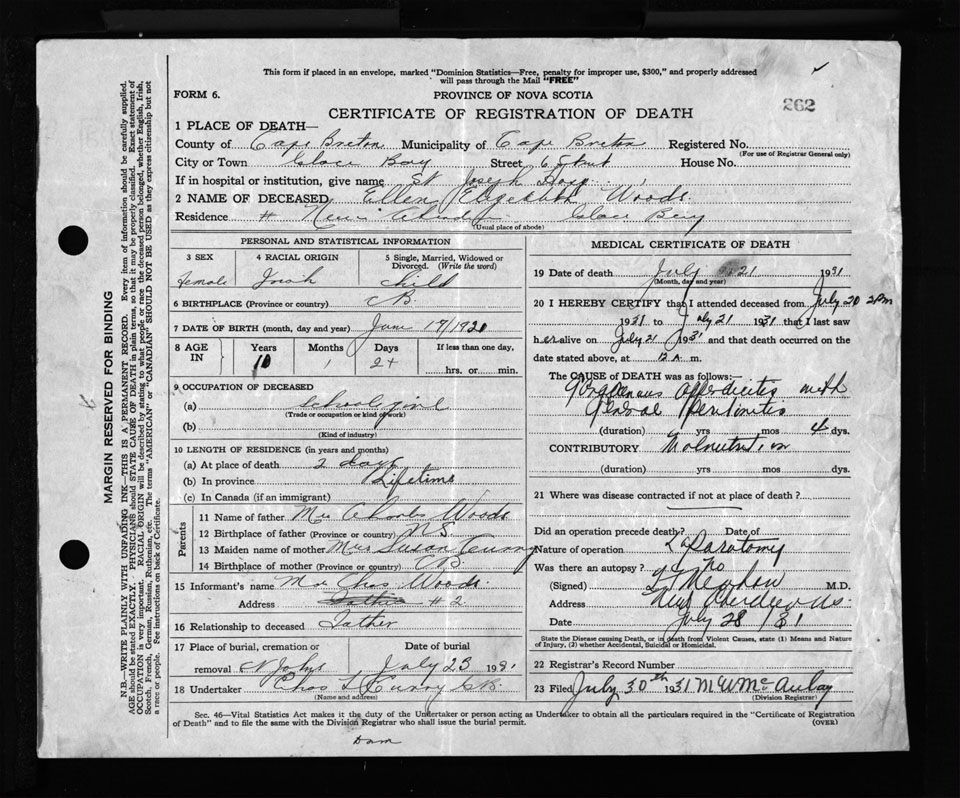 This form if placed in an envelope, marked "Dominion Statistics—Free, penalty for improper use, $300," and properly addressed
will pass through the Mail "FREE"
FORM 6. PROVINCE OF NOVA SCOTIA
262
CERTIFICATE OF REGISTRATION OF DEATH
1 PLACE OF DEATH—
County of Cape Breton Municipality of Cape Breton Registered No.
(For use of Registrar General only)
City or Town Glace Bay Street House No.
If in hospital or institution, give name St Joseph Hosp
2 NAME OF DECEASED Ellen Elizabeth Woods
Residence # New Aberdeen Glace Bay
(Usual place of abode)
PERSONAL AND STATISTICAL INFORMATION
3 SEX 4 RACIAL ORIGIN 5 Single, Married, Widowed or
Divorced. (Write the word)
female Irish child
6 BIRTHPLACE (Province or country) CB.
7 DATE OF BIRTH (month, day and year) June 17/1921
8 AGE IN Years Months Days If less than one day,
10 1 hrs. or min.
9 OCCUPATION OF DECEASED
(a) School girl
(Trade or occupation or kind of work)
(b)
(Kind of industry)
10 LENGTH OF RESIDENCE (in years and months)
(a) At place of death 2 days
(b) In province Lifetime
(c) In Canada (if an immigrant)
Parents
11 Name of father Mr Charles Woods
12 Birthplace of father (Province or country) N.S.
13 Maiden name of mother Mrs Susan Curry
14 Birthplace of mother (Province or country) CB.
15 Informant's name Mr Chas Woods.
Address # 2
16 Relationship to deceased Father
17 Place of burial, cremation or Date of burial
removal St Johns July 23 1931
18 Undertaker Chas Curry GB
(Name and address)
MEDICAL CERTIFICATE OF DEATH
19 Date of death July 21 1931
(Month, day and year)
20 I HEREBY CERTIFY that I attended deceased from July 20 2pm
1931 to July 21 1931 that I last saw
her alive on July 21 1931 and that death occurred on
date stated above, at 12 a. m.
The CAUSE OF DEATH was as follows:
Gangrenous appendicitis with
General Peritonitis
(duration) yrs mos 4 dys.
CONTRIBUTORY Malnutrition
(duration) yrs mos dys.
21 Where was disease contracted if not at place of death?
Did an operation precede death? Date of
Nature of operation Laparotomy
Was there an autopsy? no
(Signed) M.D.
Address New Aberdeen N.S.
Date July 28 / 31
State the Disease causing Death, or in death from Violent Causes, state (1) Means and Nature
of Injury, (2) whether Accidental, Suicidal or Homicidal.
22 Registrar's Record Number
23 Filed July 30th 1931 M W McAulay
(Division Registrar)
Sec. 46—Vital Statistics Act makes it the duty of the Undertaker or person acting as Undertaker to obtain all the particulars required in the "Certificate of Registration
of Death" and to file the same with the Division Registrar who shall issue the burial permit. (OVER)
MARGIN RESERVED FOR BINDING
N.B.—WRITE PLAINLY WITH UNFADING INK—THIS IS A PERMANENT RECORD. Every item of information should be carefully supplied.
AGE should be stated EXACTLY. PHYSICIANS should STATE CAUSE OF DEATH in plain terms, so that it may be properly classified. Exact statement of
OCCUPATION is very important. RACIAL ORIGIN will be described by stating to what people or race the deceased person belonged, whether English, Irish,
Scotch, French, German, Russian, Ruthenian, etc. The terms "AMERICAN" or "CANADIAN" SHOULD NOT BE USED as they express citizenship but not
a race or people. See instructions on back of Certificate.